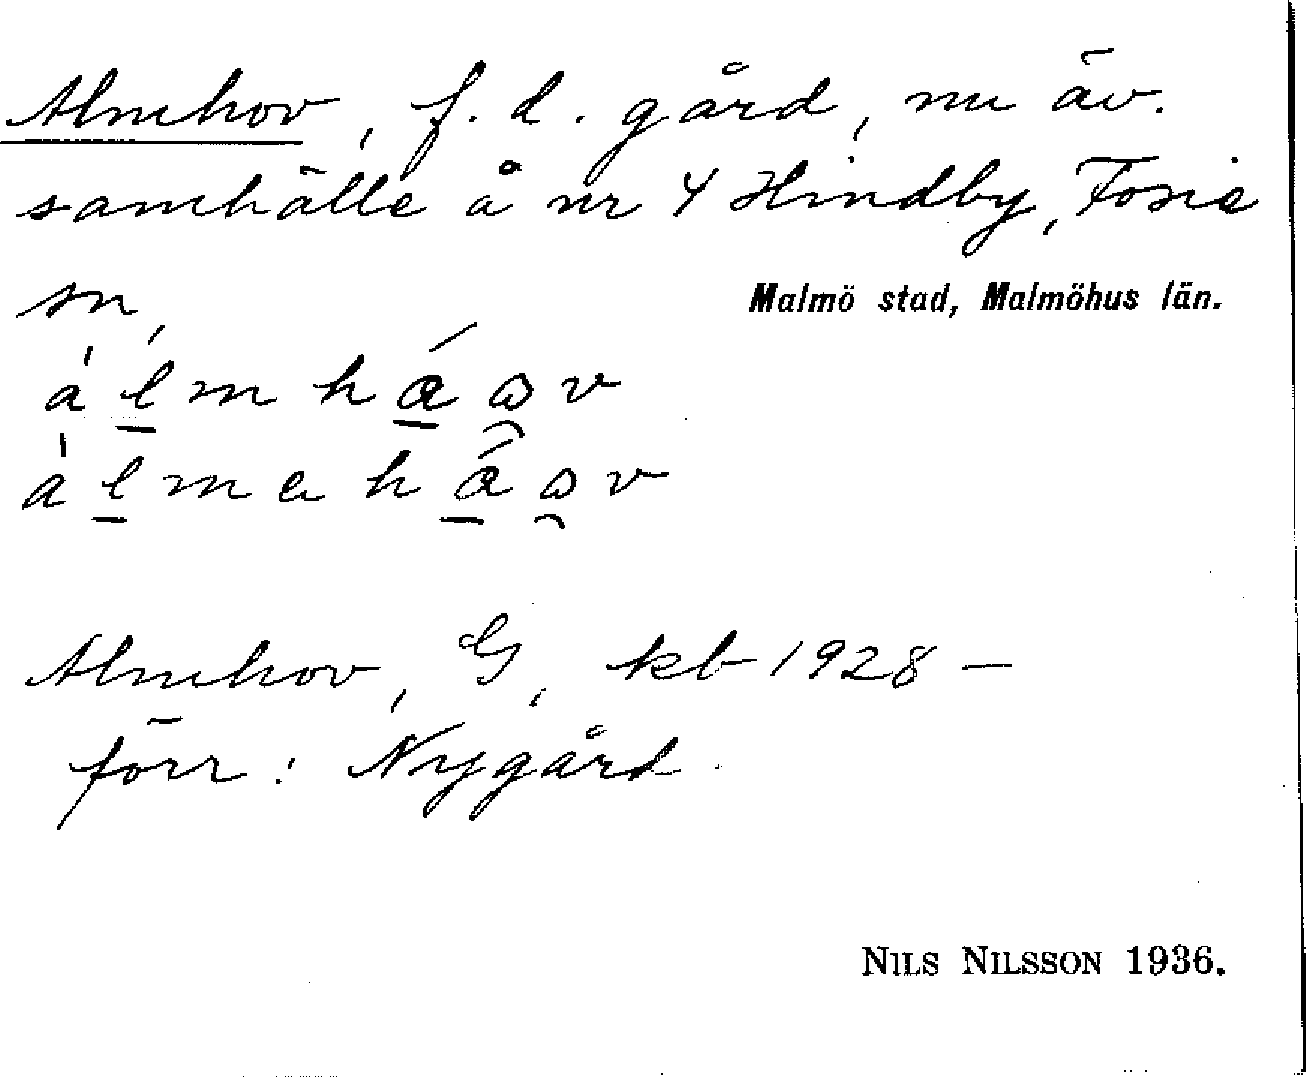 Almhov, f. d. gård, nu äv.
samhälle å nr 4 Hindby, Fosie
sn,
Malmö stad, Malmöhus län.
Almhov, G, kb 1928 –
förr: Nygård.
NILS NILSSON 1936.